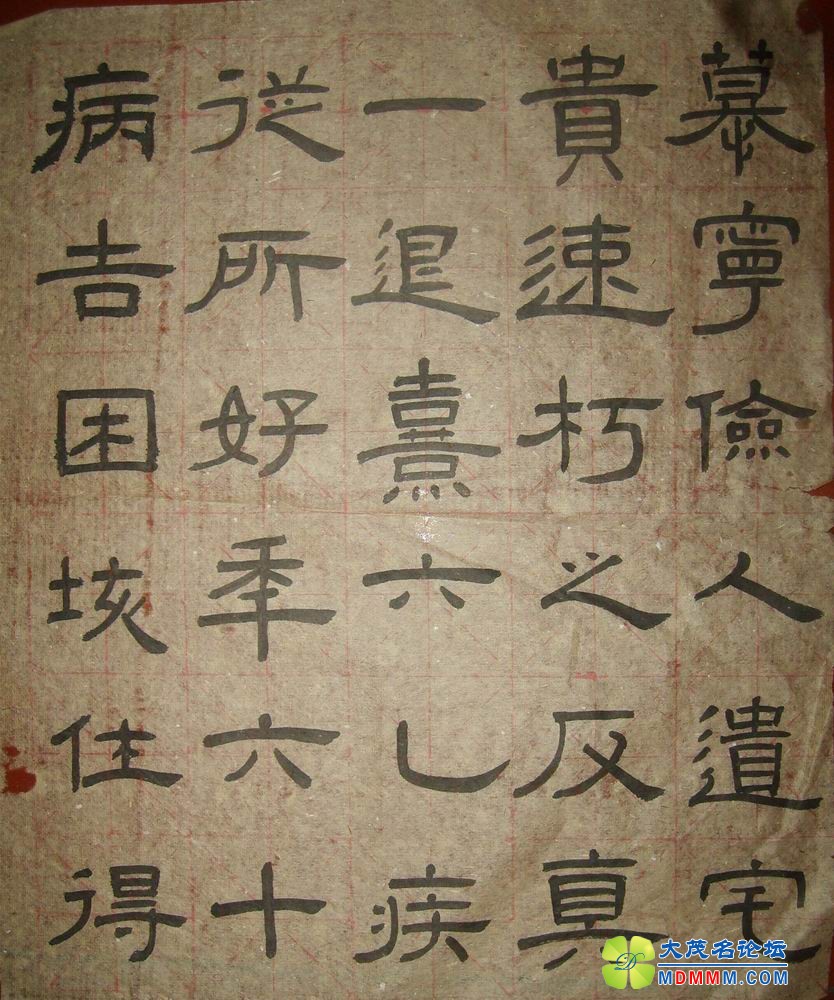 慕寧儉人遺宅
貴速朽之反真
一退熹六乚疾
從所好秊六十
病吉困垓住得
大茂名论坛
MDMMM.COM